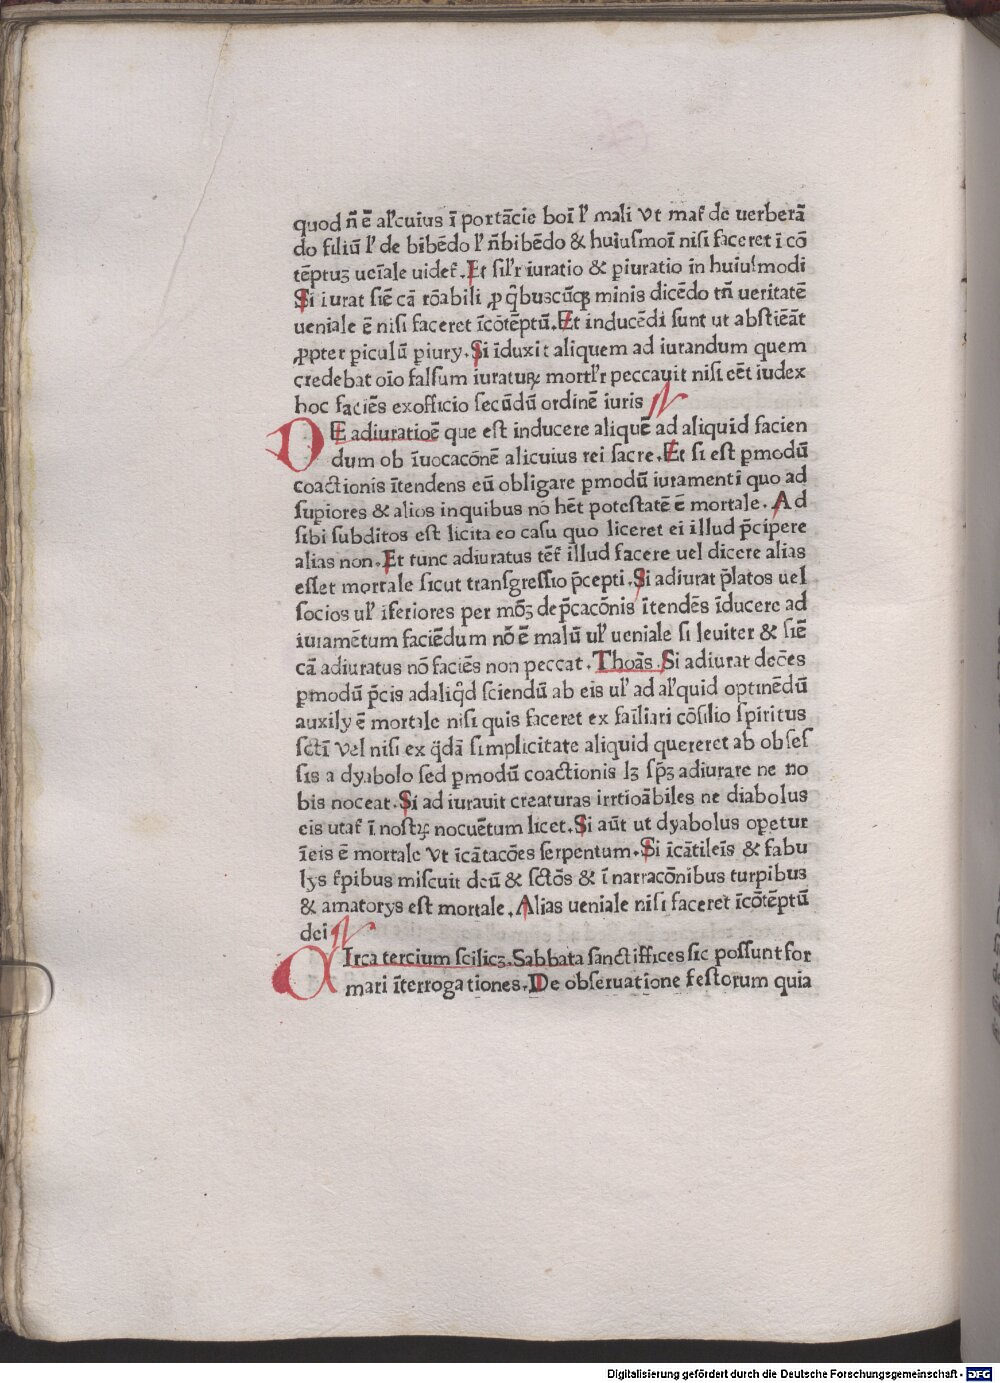 quod n̄ ē al'cuius ī portācie boī l' mali Vt mat̄ de uerberā
do filiū l' de bibēdo l' n̄bibēdo & huiuſmoī niſi faceret ī cō
tēptuꝫ ueīale uidet̄. Et ſil'r iuratio & ꝑiuratio in huiuſmodi
Si iurat ſiē cā rōabili ꝓ q̄buscūqꝫ minis dicēdo tn̄ ueritatē
ueniale ē niſi faceret īcōtēptū. Et inducēdi ſunt ut abſtiēāt
ꝓpter ꝑiculū ꝑiury. Si īduxit aliquem ad iurandum quem
credebat oīo falſum iuraturꝝ mortl'r peccauit niſi eēt iudex
hoc faciēs exofficio ſecūdū ordinē iuris
DE adiuratioē que eſt inducere aliquē ad aliquid facien
dum ob īuocacōnē alicuius rei ſacre. Et ſi eſt ꝑmodū
coactionis ītendens eū obligare ꝑmodū iuramentī quo ad
ſuꝑiores & alios inquibus nō hēt poteſtatē ē mortale. Ad
ſibi ſubditos eſt licita eo caſu quo liceret ei illud p̄cipere
alias non. Et tunc adiuratus tēt̄ illud facere uel dicere alias
eſſet mortale ſicut tranſgreſſio p̄cepti. Si adiurat p̄latos uel
ſocios ul' iferiores per mōꝫ dep̄cacōnis ītendēs īducere ad
iuiamētum faciēdum nō ē malū ul' ueniale ſi leuiter & ſiē
cā adiuratus nō faciēs non peccat. Thoās. Si adiurat dec̄es
ꝑmodū p̄cis adaliq̄d ſciendū ab eis ul' ad al'quid optinēdū
auxily ē mortale niſi quis faceret ex faīliari cōſilio ſpiritus
ſctī Vel niſi ex q̄dā ſimplicitate aliquid quereret ab obſeſ
ſis a dyabolo ſed ꝑmodū coactionis lꝫ ſp̄ꝫ adiurare ne no
bis noceat. Si ad iurauit creaturas irrtioābiles ne diabolus
eis utat̄ ī noſtꝝ nocuētum licet. Si aūt ut dyabolus oꝑetur
īeis ē mortale Vt īcātacōes ſerpentum. Si īcātileīs & fabu
lys t̄pibus miſcuit deū & ſctōs & ī narracōnibus turpibus
& amatorys eſt mortale. Alias ueniale niſi faceret īcōtēptū
dei
CIrca tercium ſcilicꝫ. Sabbata ſanctiffices ſic poſſunt for
mari īterrogationes. De obſeruatione feſtorum quia
Digitalisierung gefördert durch die Deutsche Forschungsgemeinschaft - DFG